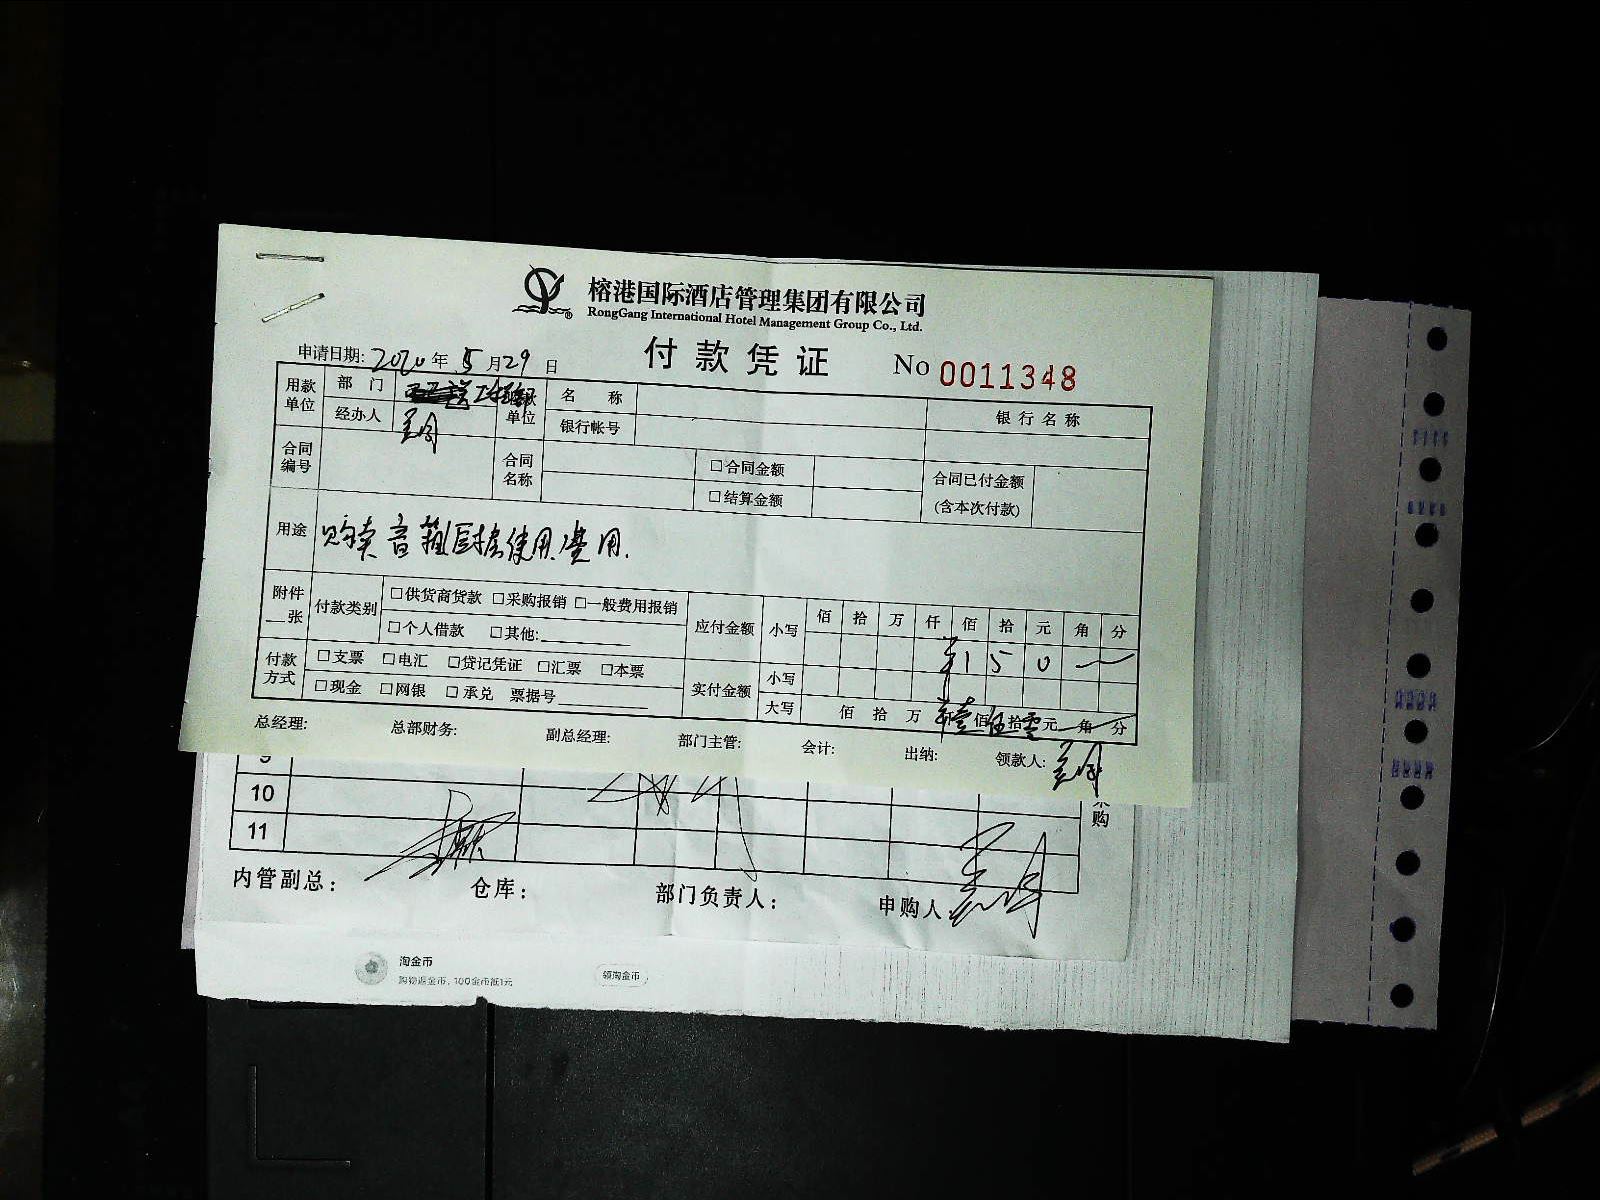 榕港国际酒店管理集团有限公司
RongGang International Hotel Management Group Co., Ltd.
付款凭证
No 0011348
申请日期: 2020年 5月29日
用款单位 部门 单位 名称 银行名称
经办人 银行帐号
合同编号 合同名称 □合同金额 合同已付金额
□结算金额 (含本次付款)
用途 购卖音箱厨房使用费用.
附件 张 付款类别 □供货商货款 □采购报销 □一般费用报销 应付金额 小写 佰 拾 万 仟 佰 拾 元 角 分
□个人借款 □其他: ¥150
付款方式 □支票 □电汇 □贷记凭证 □汇票 □本票 实付金额 小写
□现金 □网银 □承兑 票据号 大写 佰 拾 万 壹佰伍拾零元 角 分
总经理: 总部财务: 副总经理: 部门主管: 会计: 出纳: 领款人:
9
10
11
购
内管副总: 仓库: 部门负责人: 申购人
淘金币
购物返金币，100金币抵1元
领淘金币